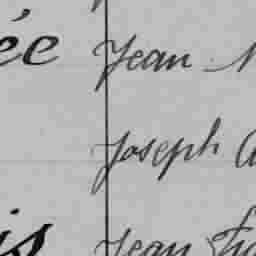 ée Jean
Joseph
is Jean